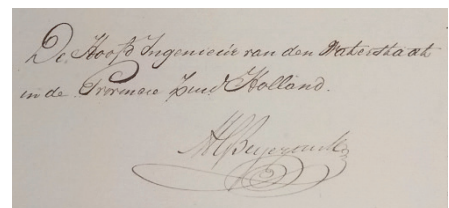 De Hoofd Ingenieur van den Waterstaat
in de Provincie Zuid Holland.